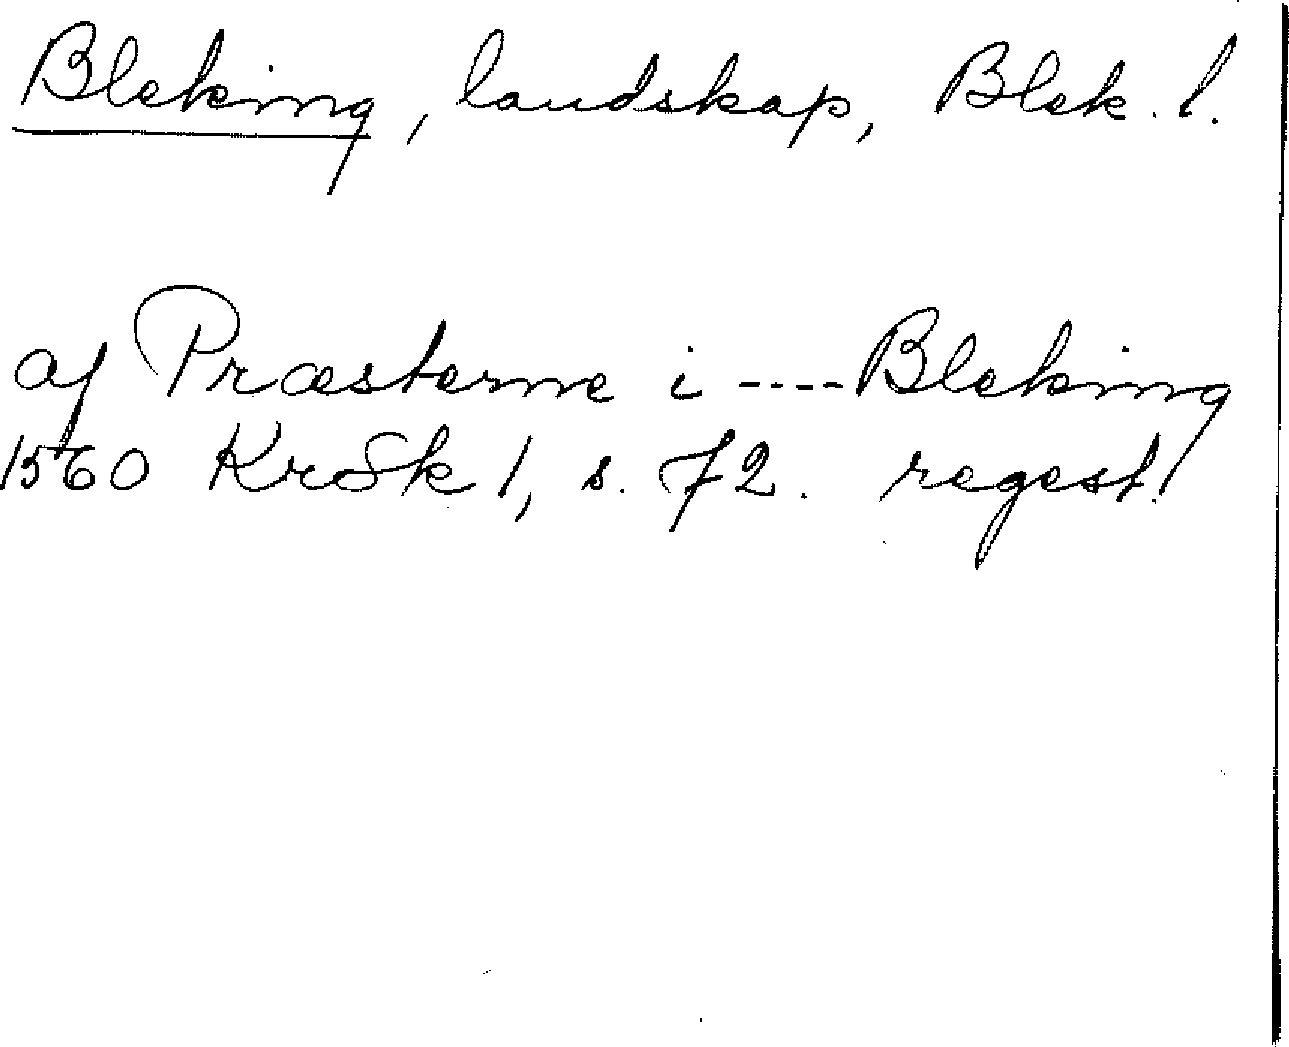 Bleking, landskap, Blek. l.
af Præsterne i ---- Bleking
1560 KrSk 1, s. 72. regest.